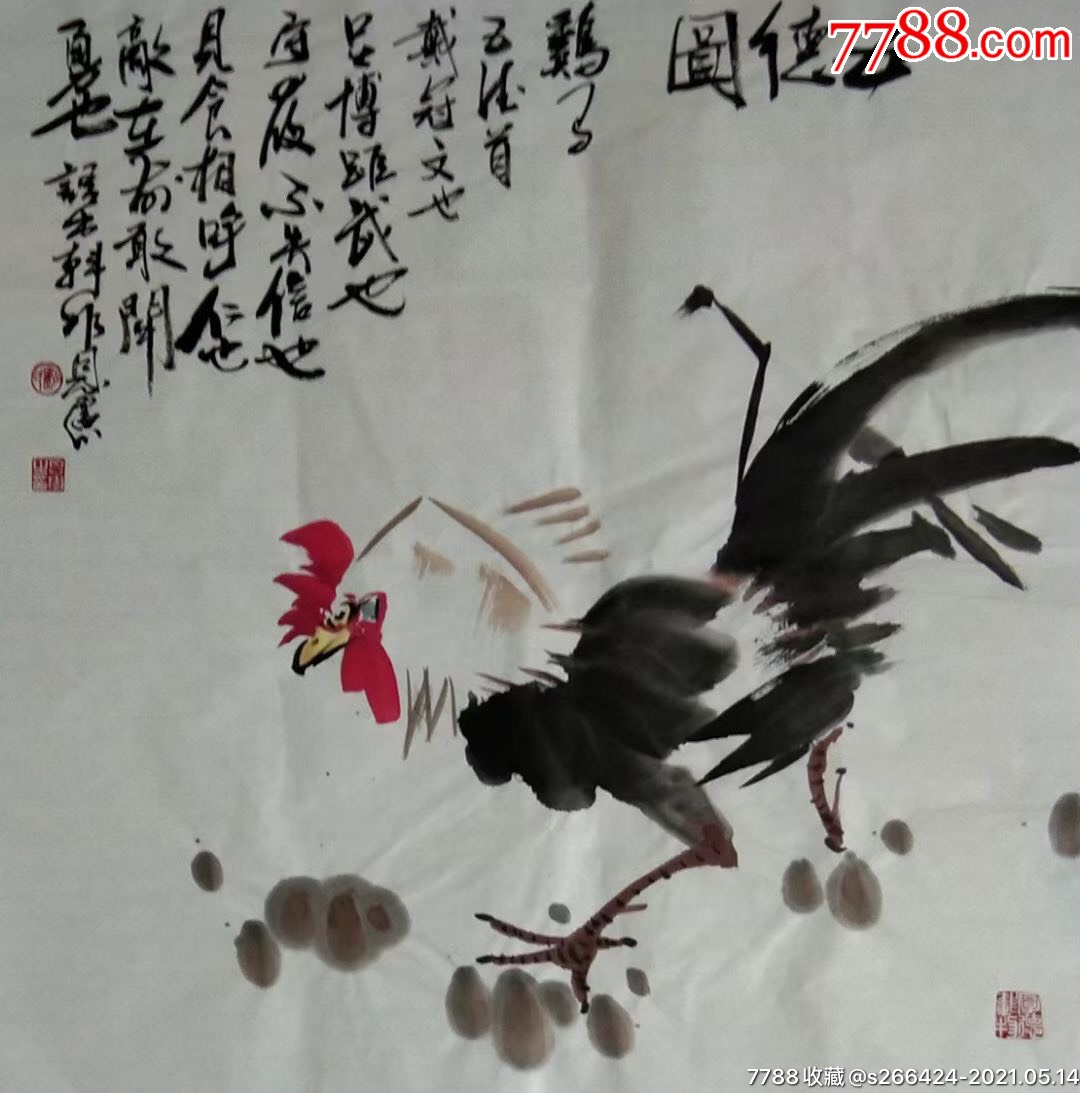 五德圖
鷄
五德首
戴冠文也
足博距武也
守夜不失信也
見食相呼仁也
敵在前敢鬪
勇也
7788.com
7788收藏@s266424-2021.05.14